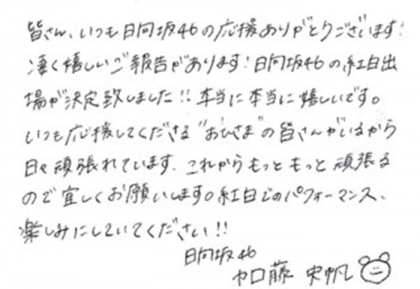 皆さん、いつも日向坂46の応援ありがとうございます!
凄く嬉しいご報告があります!日向坂46の紅白出
場が決定致しました!!本当に本当に嬉しいです。
いつも応援してくださる"おひさま"の皆さんがいるから
日々頑張れています。これからもっともっと頑張る
ので宜しくお願いします。紅白でのパフォーマンス、
楽しみにしていてください!!
日向坂46
加藤 史帆